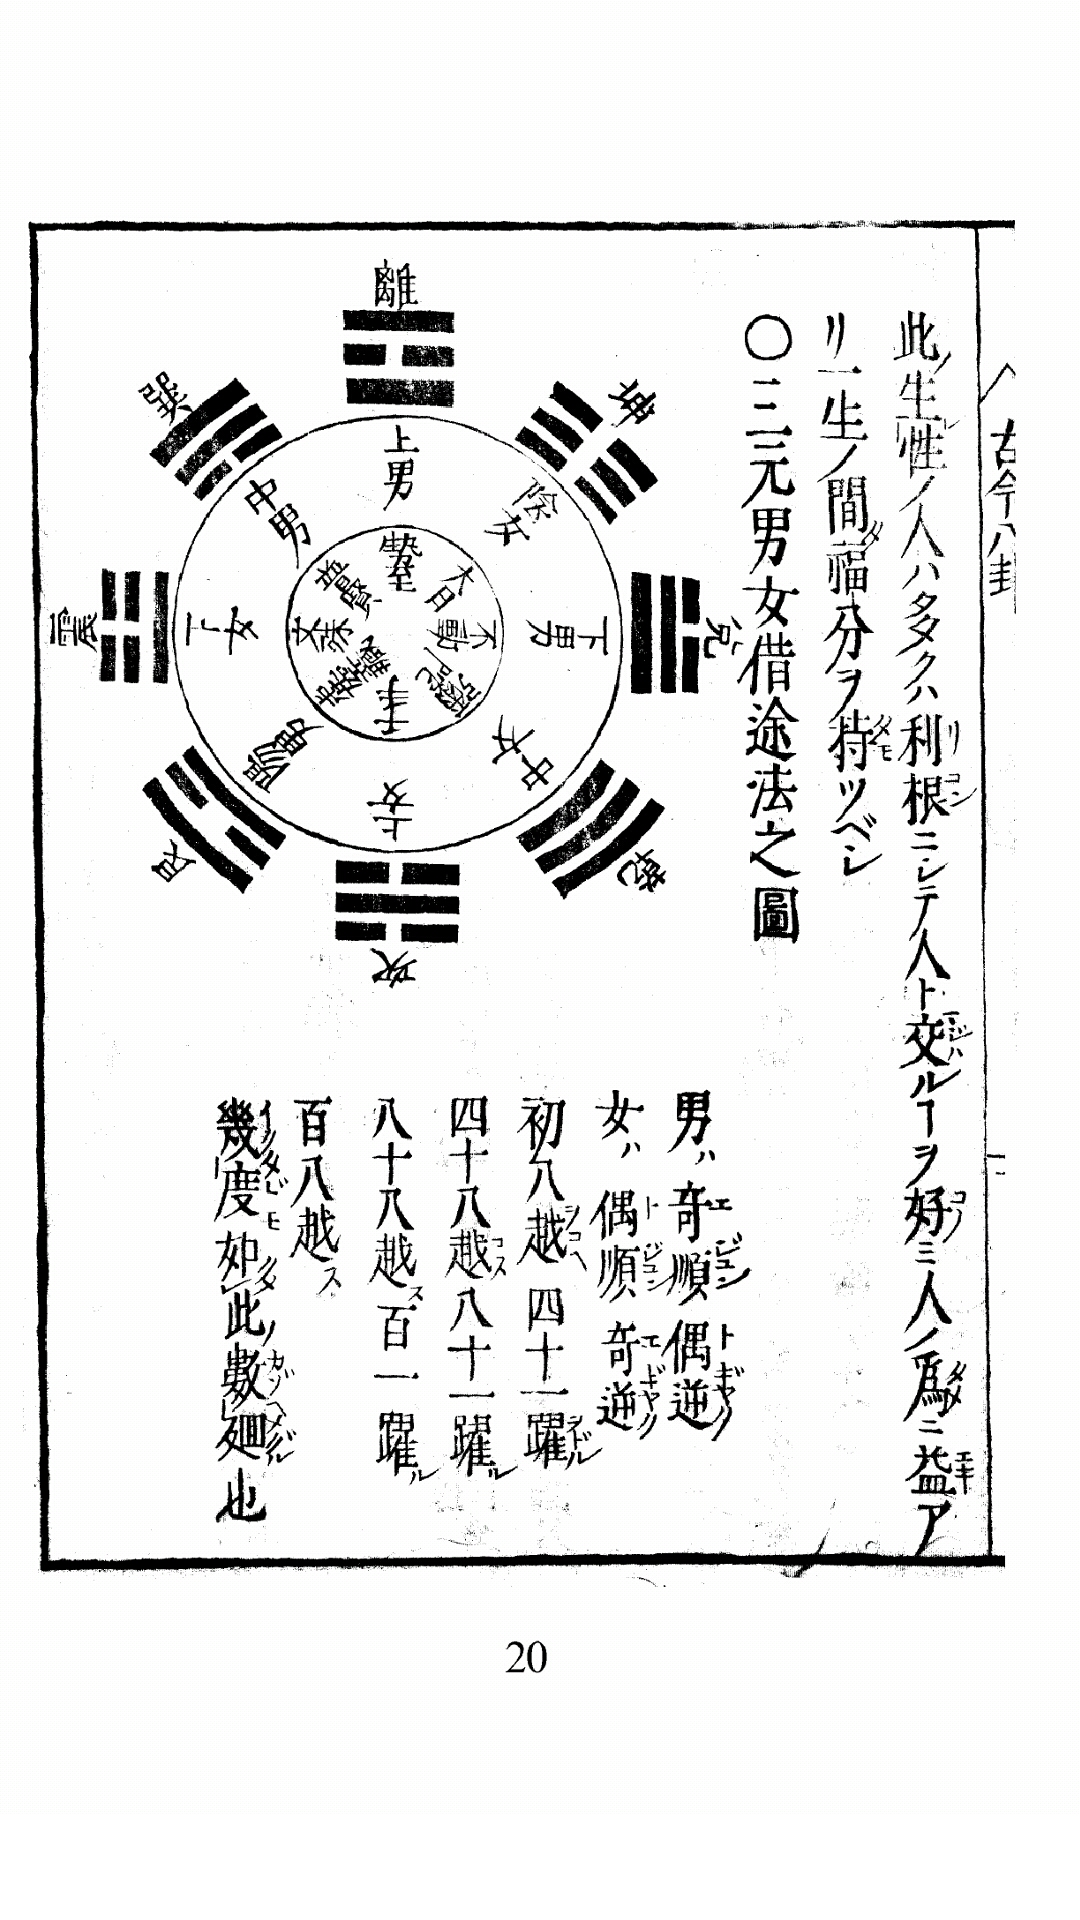 古今八卦
此ノ生性ノ人ハ多クハ利根ニシテ人ト交ルヿヲ好ミ人ノ爲ニ益ア
リ一生ノ間福分ヲ持ツベシ
〇三元男女借途法之圖
離
坤
兌
乾
坎
艮
震
巽
上男
陰女
下男
中女
上女
陽男
下女
中男
勢至
大日
不動
弥陀
千手
虚空藏
文殊
普賢
男ハ奇順偶逆
女ハ偶順奇逆
初八越四十一躍
四十八越八十一躍ル
八十八越ス百一躍ル
百八越ス
幾度如此ノ數廻也
20